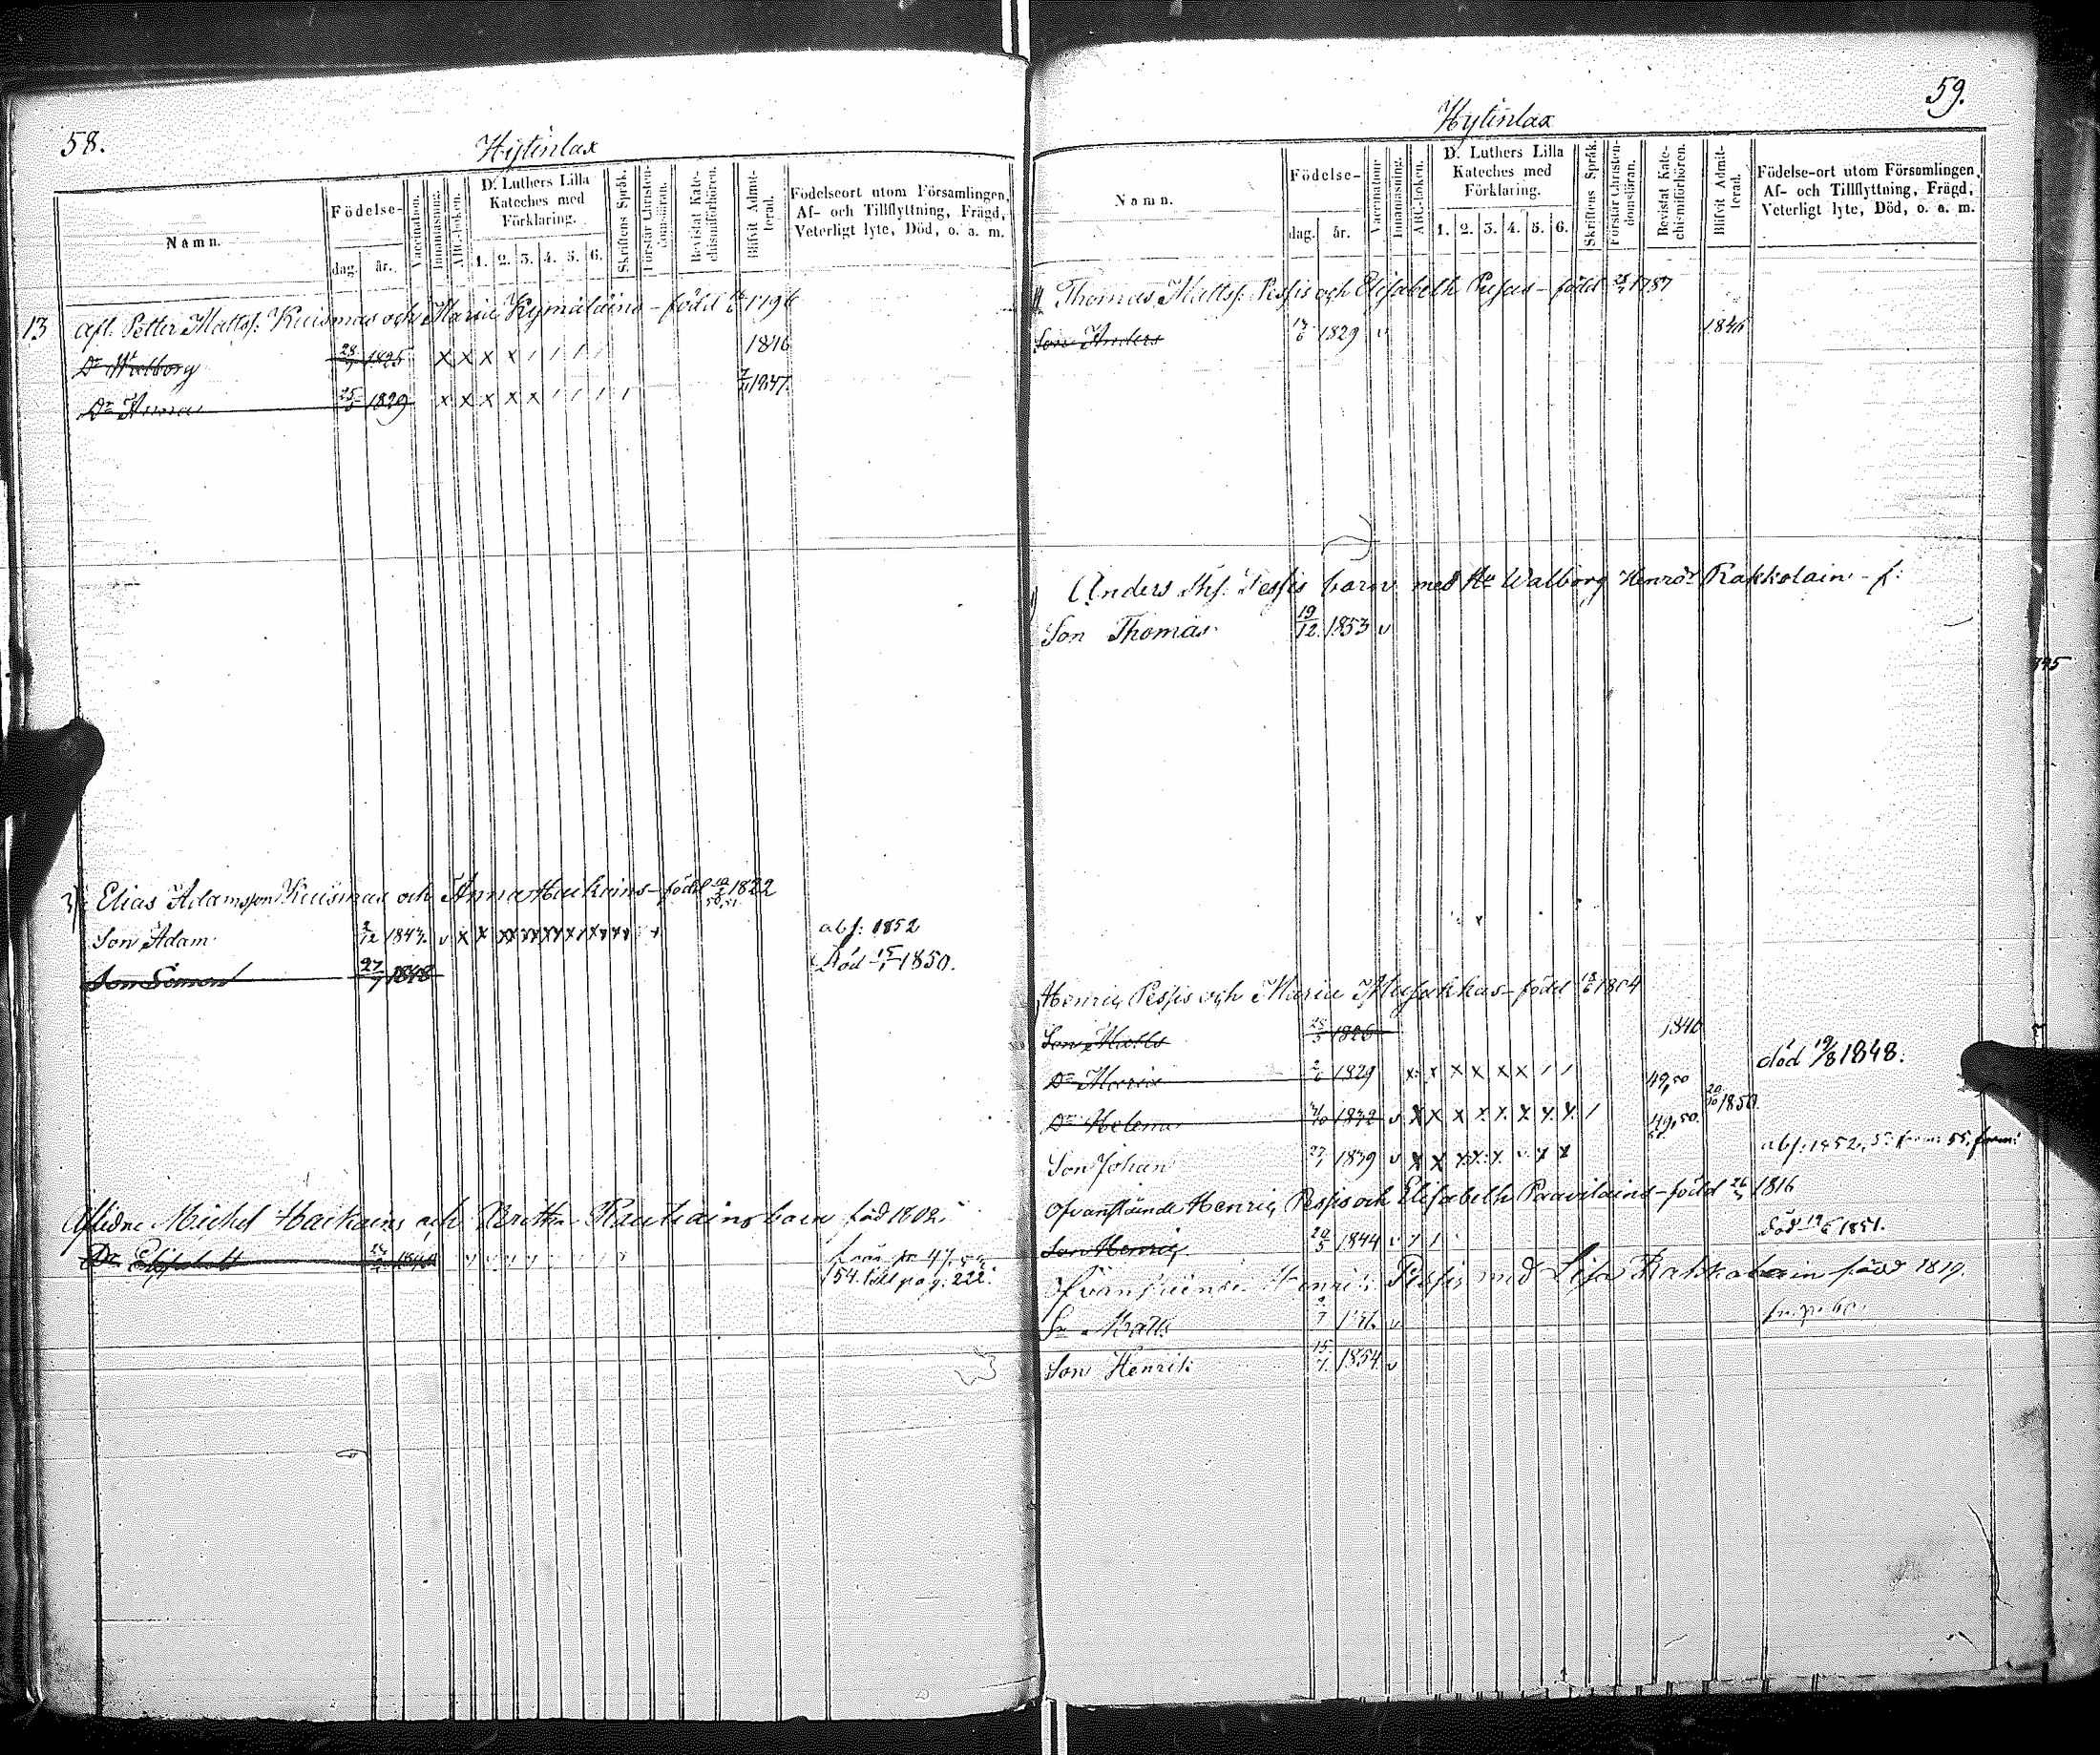 58.
Hytinlax
Namn.
Födelse-
dag.
år.
Vaccination.
Innanläsning.
ABC-boken.
D. Luthers Lilla
Kateches med
Förklaring.
1. 2. 3. 4. 5. 6.
Skriftens Språk.
Förstår Christen-
domsläran.
Bevistat Kate-
chismiförhören.
Blifvit Admit-
terad.
Födelseort utom Församlingen,
Af- och Tillflyttning, Frägd,
Veterligt lyte, Död, o. a. m.
13 afl. Petter Mattss: Kuismas och Maria Kymäläins - född 1796
Dr Walborg 28 1825 x x x x / / / / 1846
Dr Anna 25 1829 x x x x x / / / / 1847.
3) Elias Adamsson Kuismas och Anna Haikains - född 1822
Son Adam 1843. v x x xx xx xx x xx xx abs: 1852
Son Simon 27/7 1848 Död 15/1 1850.
Aflidne Michel Haikains och Britha Rautiains barn född 1802.
Dr Elisabeth från p. 47,
54. till pag: 222.
59.
Hytinlax
Namn.
Födelse-
dag. år.
Vaccination.
Innanläsning.
ABC-boken.
D. Luthers Lilla
Kateches med
Förklaring.
1. 2. 3. 4. 5. 6.
Skriftens Språk.
Förstår Christen-
domsläran.
Bevistat Kate-
chismiförhören.
Blifvit Admit-
terad.
Födelse-ort utom Församlingen,
Af- och Tillflyttning, Frägd,
Veterligt lyte, Död, o. a. m.
Thomas Mattss: Pessis och Elisabeth - född 1787
Son Anders 1829 v 1846
Anders Ths: Pessis barn med Hu Walborg Henrdr Rakkolain - f:
Son Thomas 19/12 1853 v
Henric Pessis och Maria - född 1804
Son Matts 1826 1846
Dr Maria 1829 x x x x x x / / 49,50 död 19/8 1848.
Dr Helena 1832 v x x x x x x x x / 49,50. 20/10 1850.
Son Johan 1839 v x x x x x v x x abs: 1852,
Ofvanstående Henric Pessis och Elisabeth Paavilains - född 1816
Son Henric 1844 v Död 1851.
Ofvanstående Henric Pessis med Lisa Rakkolain född 1819.
Sn Matts v
Son Henrik 15 1854 v